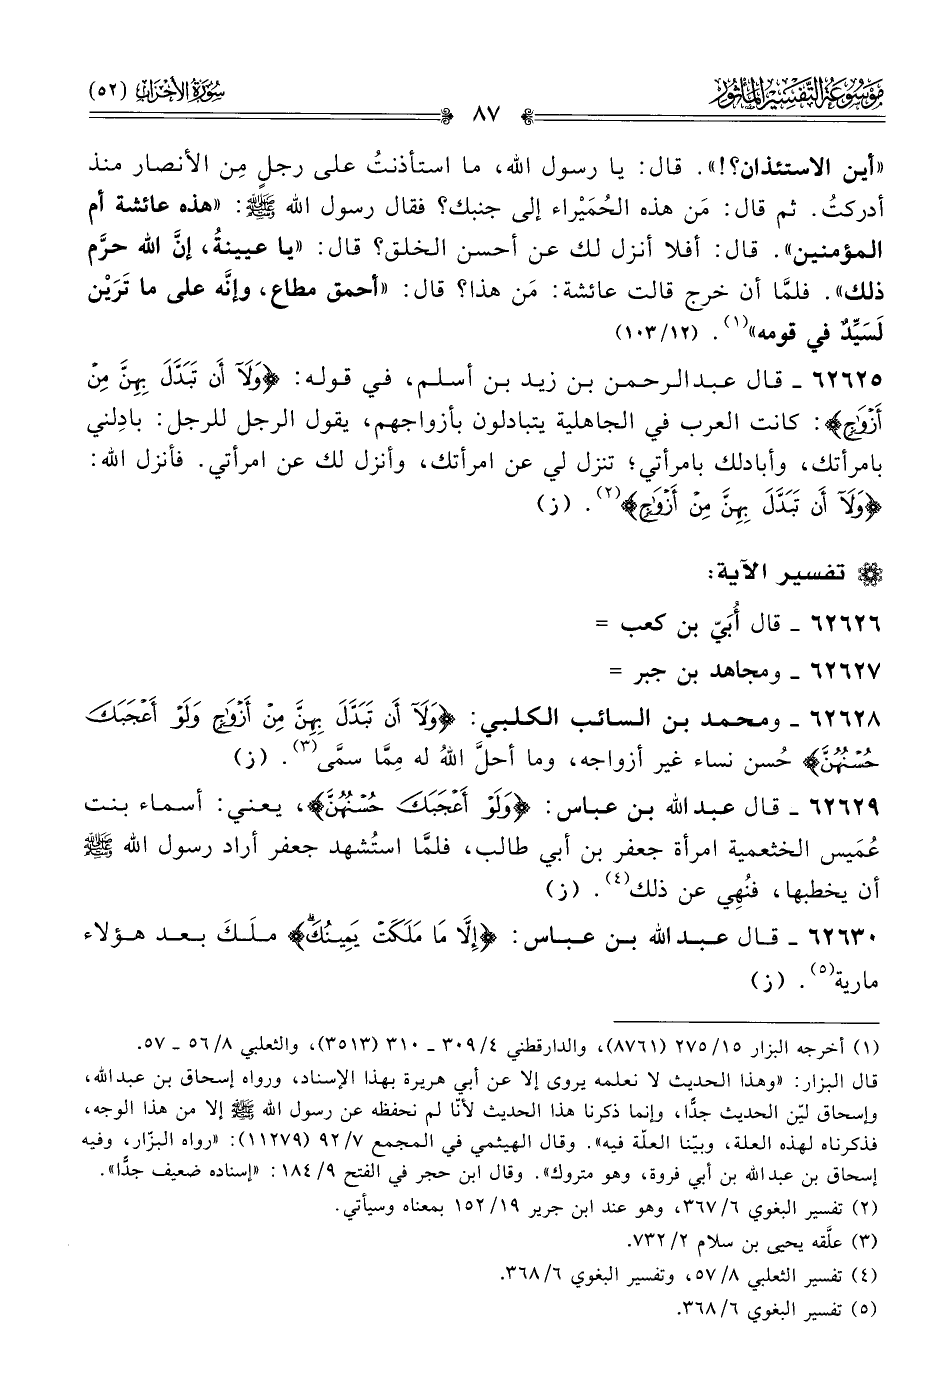 مَوْسُوعَة التَّفْسِيْر المَأْثُور
٨٧
سُورَةُ الأَحْزَاب (٥٢)
«أين الاستئذان؟!». قال: يا رسول الله، ما استأذنتُ على رجلٍ مِن الأنصار منذ
أدركتُ. ثم قال: مَن هذه الحُمَيْراء إلى جنبك؟ فقال رسول الله ﷺ: «هذه عائشة أم
المؤمنين». قال: أفلا أنزل لك عن أحسن الخلق؟ قال: «يا عيينةُ، إنَّ الله حرَّم
ذلك». فلمَّا أن خرج قالت عائشة: مَن هذا؟ قال: «أحمق مطاع، وإنَّه على ما تَرَيْن
لَسَيِّدٌ في قومه»(١). (١٠٣/١٢)
٦٢٦٢٥ ـ قال عبدالرحمن بن زيد بن أسلم، في قوله: ﴿وَلَآ أَن تَبَدَّلَ بِهِنَّ مِنْ
أَزْوَٰجٍ﴾: كانت العرب في الجاهلية يتبادلون بأزواجهم، يقول الرجل للرجل: بادِلني
بامرأتك، وأبادلك بامرأتي؛ تنزل لي عن امرأتك، وأنزل لك عن امرأتي. فأنزل الله:
﴿وَلَآ أَن تَبَدَّلَ بِهِنَّ مِنْ أَزْوَٰجٍ﴾(٢). (ز)
تفسير الآية:
٦٢٦٢٦ ـ قال أُبَيّ بن كعب =
٦٢٦٢٧ ـ ومجاهد بن جبر =
٦٢٦٢٨ ـ ومحمد بن السائب الكلبي: ﴿وَلَآ أَن تَبَدَّلَ بِهِنَّ مِنْ أَزْوَٰجٍ وَلَوْ أَعْجَبَكَ
حُسْنُهُنَّ﴾ حُسن نساء غير أزواجه، وما أحلَّ اللهُ له مِمَّا سمَّى(٣). (ز)
٦٢٦٢٩ ـ قال عبدالله بن عباس: ﴿وَلَوْ أَعْجَبَكَ حُسْنُهُنَّ﴾، يعني: أسماء بنت
عُمَيس الخثعمية امرأة جعفر بن أبي طالب، فلمَّا استُشهد جعفر أراد رسول الله ﷺ
أن يخطبها، فنُهِي عن ذلك(٤). (ز)
٦٢٦٣٠ ـ قال عبدالله بن عباس: ﴿إِلَّا مَا مَلَكَتْ يَمِينُكَۗ﴾ ملَكَ بعد هؤلاء
مارية(٥). (ز)
(١) أخرجه البزار ١٥/ ٢٧٥ (٨٧٦١)، والدارقطني ٤/ ٣٠٩ ـ ٣١٠ (٣٥١٣)، والثعلبي ٨/ ٥٦ ـ ٥٧.
قال البزار: «وهذا الحديث لا نعلمه يروى إلا عن أبي هريرة بهذا الإسناد، ورواه إسحاق بن عبدالله،
وإسحاق ليّن الحديث جدًّا، وإنما ذكرنا هذا الحديث لأنّا لم نحفظه عن رسول الله ﷺ إلا من هذا الوجه،
فذكرناه لهذه العلة، وبيّنا العلّة فيه». وقال الهيثمي في المجمع ٧/ ٩٢ (١١٢٧٩): «رواه البزّار، وفيه
إسحاق بن عبدالله بن أبي فروة، وهو متروك». وقال ابن حجر في الفتح ٩/ ١٨٤: «إسناده ضعيف جدًّا».
(٢) تفسير البغوي ٦/ ٣٦٧، وهو عند ابن جرير ١٩/ ١٥٢ بمعناه وسيأتي.
(٣) علَّقه يحيى بن سلام ٢/ ٧٣٢.
(٤) تفسير الثعلبي ٨/ ٥٧، وتفسير البغوي ٦/ ٣٦٨.
(٥) تفسير البغوي ٦/ ٣٦٨.